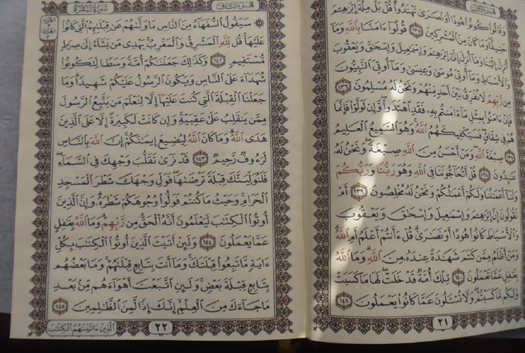 وَقَالُوا۟ كُونُوا۟ هُودًا أَوْ نَصَٰرَىٰ تَهْتَدُوا۟ قُلْ بَلْ مِلَّةَ إِبْرَٰهِـۧمَ
حَنِيفًا وَمَا كَانَ مِنَ ٱلْمُشْرِكِينَ ١٣٥ قُولُوٓا۟ ءَامَنَّا بِٱللَّهِ وَمَآ
أُنزِلَ إِلَيْنَا وَمَآ أُنزِلَ إِلَىٰٓ إِبْرَٰهِـۧمَ وَإِسْمَٰعِيلَ وَإِسْحَٰقَ وَيَعْقُوبَ
وَٱلْأَسْبَاطِ وَمَآ أُوتِىَ مُوسَىٰ وَعِيسَىٰ وَمَآ أُوتِىَ ٱلنَّبِيُّونَ
مِن رَّبِّهِمْ لَا نُفَرِّقُ بَيْنَ أَحَدٍ مِّنْهُمْ وَنَحْنُ لَهُۥ مُسْلِمُونَ ١٣٦
فَإِنْ ءَامَنُوا۟ بِمِثْلِ مَآ ءَامَنتُم بِهِۦ فَقَدِ ٱهْتَدَوا۟ وَّإِن تَوَلَّوْا۟ فَإِنَّمَا
هُمْ فِى شِقَاقٍ فَسَيَكْفِيكَهُمُ ٱللَّهُ وَهُوَ ٱلسَّمِيعُ ٱلْعَلِيمُ
١٣٧ صِبْغَةَ ٱللَّهِ وَمَنْ أَحْسَنُ مِنَ ٱللَّهِ صِبْغَةً وَنَحْنُ لَهُۥ
عَٰبِدُونَ ١٣٨ قُلْ أَتُحَآجُّونَنَا فِى ٱللَّهِ وَهُوَ رَبُّنَا وَرَبُّكُمْ
وَلَنَآ أَعْمَٰلُنَا وَلَكُمْ أَعْمَٰلُكُمْ وَنَحْنُ لَهُۥ مُخْلِصُونَ ١٣٩ أَمْ
تَقُولُونَ إِنَّ إِبْرَٰهِـۧمَ وَإِسْمَٰعِيلَ وَإِسْحَٰقَ وَيَعْقُوبَ
وَٱلْأَسْبَاطَ كَانُوا۟ هُودًا أَوْ نَصَٰرَىٰ قُلْ ءَأَنتُمْ أَعْلَمُ أَمِ ٱللَّهُ
وَمَنْ أَظْلَمُ مِمَّن كَتَمَ شَهَٰدَةً عِندَهُۥ مِنَ ٱللَّهِ وَمَا ٱللَّهُ
بِغَٰفِلٍ عَمَّا تَعْمَلُونَ ١٤٠ تِلْكَ أُمَّةٌ قَدْ خَلَتْ لَهَا مَا كَسَبَتْ
وَلَكُم مَّا كَسَبْتُمْ وَلَا تُسْـَٔلُونَ عَمَّا كَانُوا۟ يَعْمَلُونَ ١٤١
٢١
سَيَقُولُ ٱلسُّفَهَآءُ مِنَ ٱلنَّاسِ مَا وَلَّىٰهُمْ عَن قِبْلَتِهِمُ ٱلَّتِى كَانُوا۟
عَلَيْهَا قُل لِّلَّهِ ٱلْمَشْرِقُ وَٱلْمَغْرِبُ يَهْدِى مَن يَشَآءُ إِلَىٰ صِرَٰطٍ
مُّسْتَقِيمٍ ١٤٢ وَكَذَٰلِكَ جَعَلْنَٰكُمْ أُمَّةً وَسَطًا لِّتَكُونُوا۟
شُهَدَآءَ عَلَى ٱلنَّاسِ وَيَكُونَ ٱلرَّسُولُ عَلَيْكُمْ شَهِيدًا وَمَا
جَعَلْنَا ٱلْقِبْلَةَ ٱلَّتِى كُنتَ عَلَيْهَآ إِلَّا لِنَعْلَمَ مَن يَتَّبِعُ ٱلرَّسُولَ
مِمَّن يَنقَلِبُ عَلَىٰ عَقِبَيْهِ وَإِن كَانَتْ لَكَبِيرَةً إِلَّا عَلَى ٱلَّذِينَ
هَدَى ٱللَّهُ وَمَا كَانَ ٱللَّهُ لِيُضِيعَ إِيمَٰنَكُمْ إِنَّ ٱللَّهَ بِٱلنَّاسِ
لَرَءُوفٌ رَّحِيمٌ ١٤٣ قَدْ نَرَىٰ تَقَلُّبَ وَجْهِكَ فِى ٱلسَّمَآءِ
فَلَنُوَلِّيَنَّكَ قِبْلَةً تَرْضَىٰهَا فَوَلِّ وَجْهَكَ شَطْرَ ٱلْمَسْجِدِ
ٱلْحَرَامِ وَحَيْثُ مَا كُنتُمْ فَوَلُّوا۟ وُجُوهَكُمْ شَطْرَهُۥ وَإِنَّ ٱلَّذِينَ
أُوتُوا۟ ٱلْكِتَٰبَ لَيَعْلَمُونَ أَنَّهُ ٱلْحَقُّ مِن رَّبِّهِمْ وَمَا ٱللَّهُ بِغَٰفِلٍ
عَمَّا يَعْمَلُونَ ١٤٤ وَلَئِنْ أَتَيْتَ ٱلَّذِينَ أُوتُوا۟ ٱلْكِتَٰبَ بِكُلِّ
ءَايَةٍ مَّا تَبِعُوا۟ قِبْلَتَكَ وَمَآ أَنتَ بِتَابِعٍ قِبْلَتَهُمْ وَمَا بَعْضُهُم
بِتَابِعٍ قِبْلَةَ بَعْضٍ وَلَئِنِ ٱتَّبَعْتَ أَهْوَآءَهُم مِّنۢ بَعْدِ
مَا جَآءَكَ مِنَ ٱلْعِلْمِ إِنَّكَ إِذًا لَّمِنَ ٱلظَّٰلِمِينَ ١٤٥
٢٢
ٱلَّذِينَ ءَاتَيْنَٰهُمُ ٱلْكِتَٰبَ